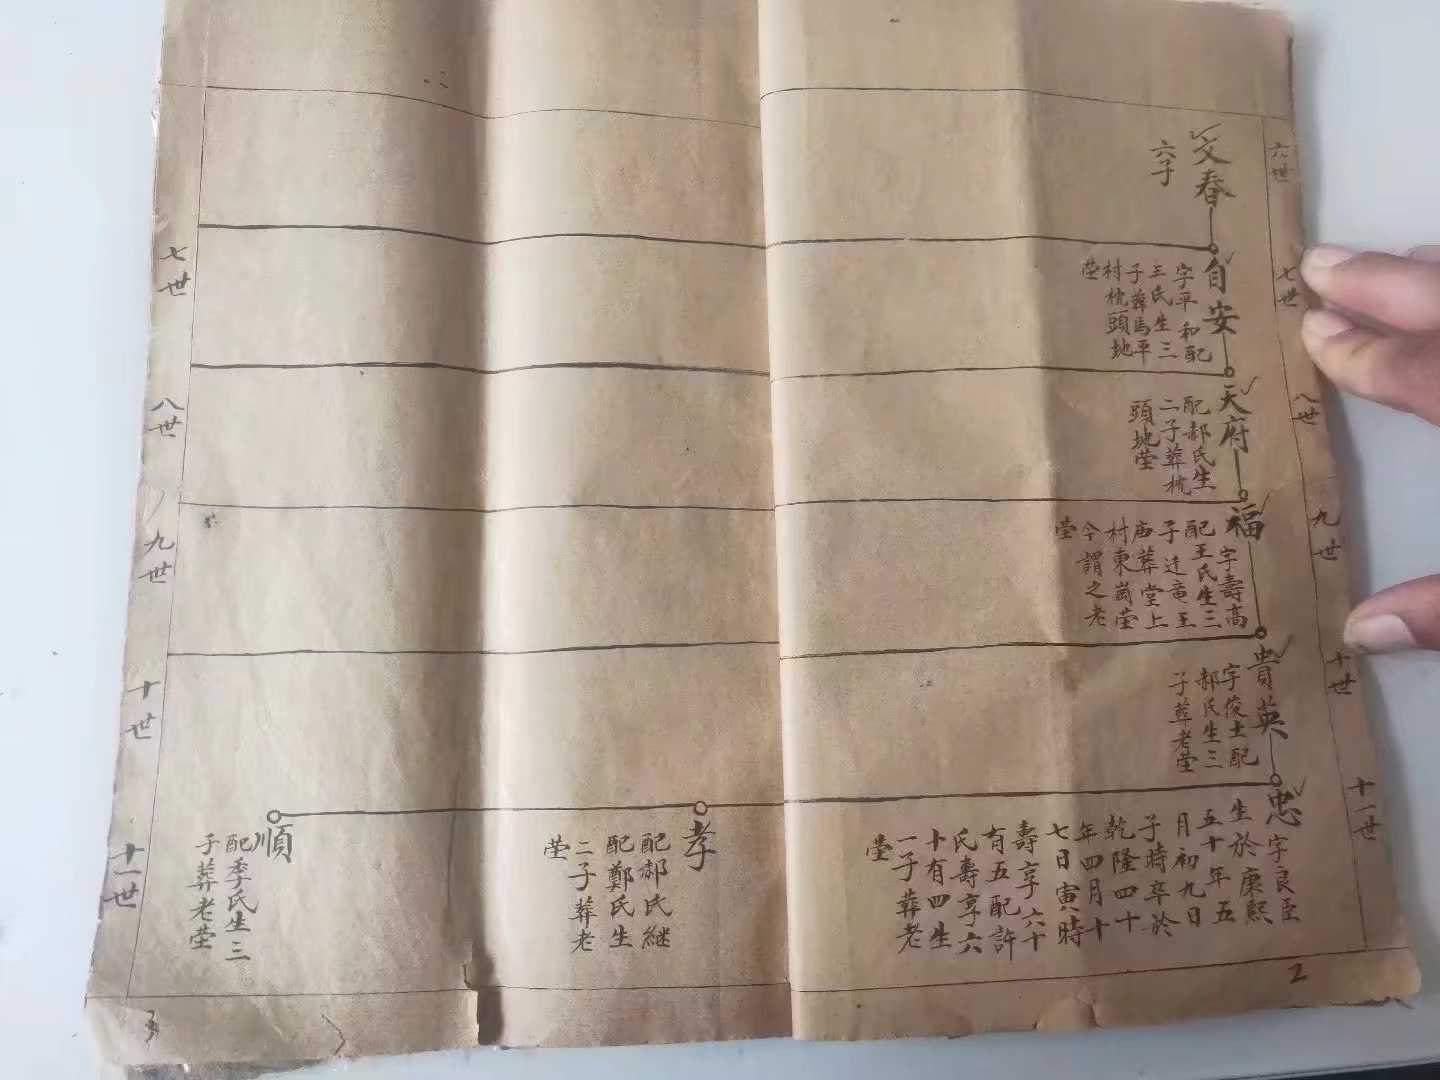 六世
七世
八世
九世
十世
十一世
文春
六子
自安
字平和配
王氏生三
子葬馬平
村枕頭地
塋
天府
配郝氏生
二子葬枕
頭地塋
福
字壽高
配王氏生三
子迁竜王
庙葬堂上
村東崗塋
今謂之老
塋
貴英
字俊士配
郝氏生三
子葬老塋
忠
字良臣
生於康熙
五十年五
月初九日
子時卒於
乾隆四十
年四月十
七日寅時
壽享六十
有五配許
氏壽享六
十有四生
一子葬老
塋
孝
配郝氏継
配鄭氏生
二子葬老
塋
順
配季氏生三
子葬老塋
七世
八世
九世
十世
十一世
2
3